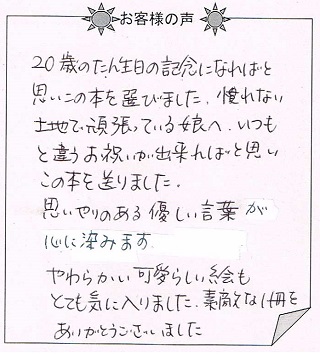 お客様の声
20歳のたん生日の記念になればと
思いこの本を選びました。慣れない
土地で頑張っている娘へ、いつも
と違うお祝いが出来ればと思い
この本を送りました。
思いやりのある優しい言葉が
心に染みます。
やわらかい可愛らしい絵も
とても気に入りました。素敵な1冊を
ありがとうございました